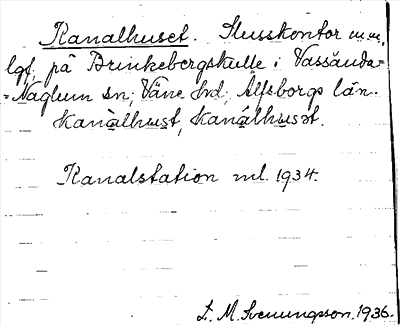 Kanalhuset. Slusskontor m.m.,
lgt. på Brinkebergskulle i Vassända-
-Naglum sn, Väne hd, Älfsborgs län.
kanàlhust, kanálhusət.
Kanalstation ml. 1934.
L. M. Svenungsson. 1936.